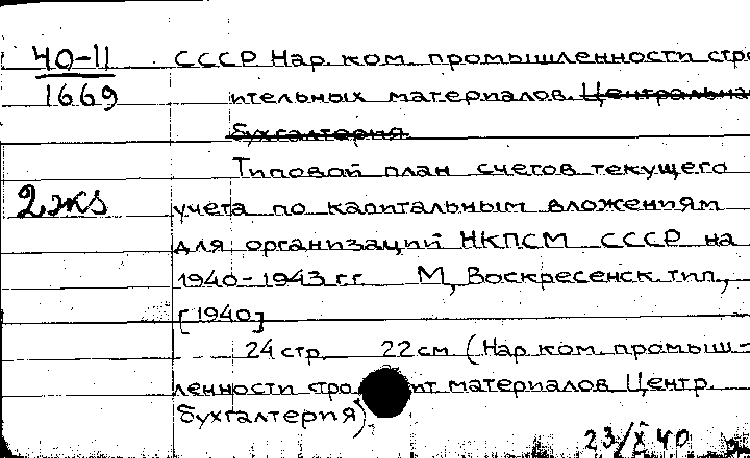 40-11
1669
2 экз
СССР Нар. ком. промышленности стро
ительных материалов. Центральная
бухгалтерия.
Типовой план счетов текущего
учета по капитальным вложениям
для организаций НКПСМ СССР на
1940-1943 г.г. М, Воскресенск. тип.,
[1940]
24 стр. 22 см. (Нар. ком. промыш-
ленности стро ит материалов Центр.
бухгалтерия).
23/X 40